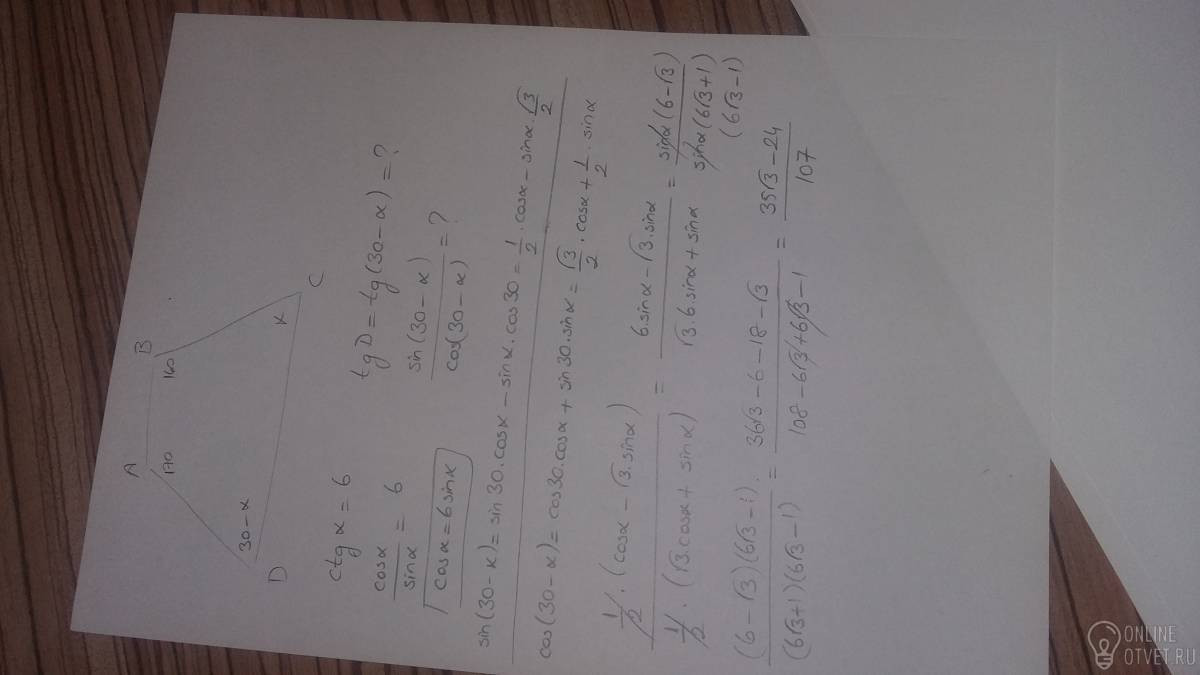 A B
170 160
30-α α
D C
ctg α = 6
cosα/sinα = 6
cosα = 6 sinα
tg D = tg(30-α) = ?
sin(30-α)/cos(30-α) = ?
sin(30-α) = sin30·cosα - sinα·cos30 = 1/2·cosα - sinα·√3/2
cos(30-α) = cos30·cosα + sin30·sinα = √3/2·cosα + 1/2·sinα
1/2·(cosα - √3·sinα) / 1/2·(√3·cosα + sinα) = 6·sinα - √3·sinα / √3·6·sinα + sinα = sinα(6-√3) / sinα(6√3+1)
(6√3-1)
(6-√3)(6√3-1)· / (6√3+1)(6√3-1) = 36√3-6-18-√3 / 108-6√3+6√3-1 = 35√3-24 / 107
ONLINE
OTVET.RU